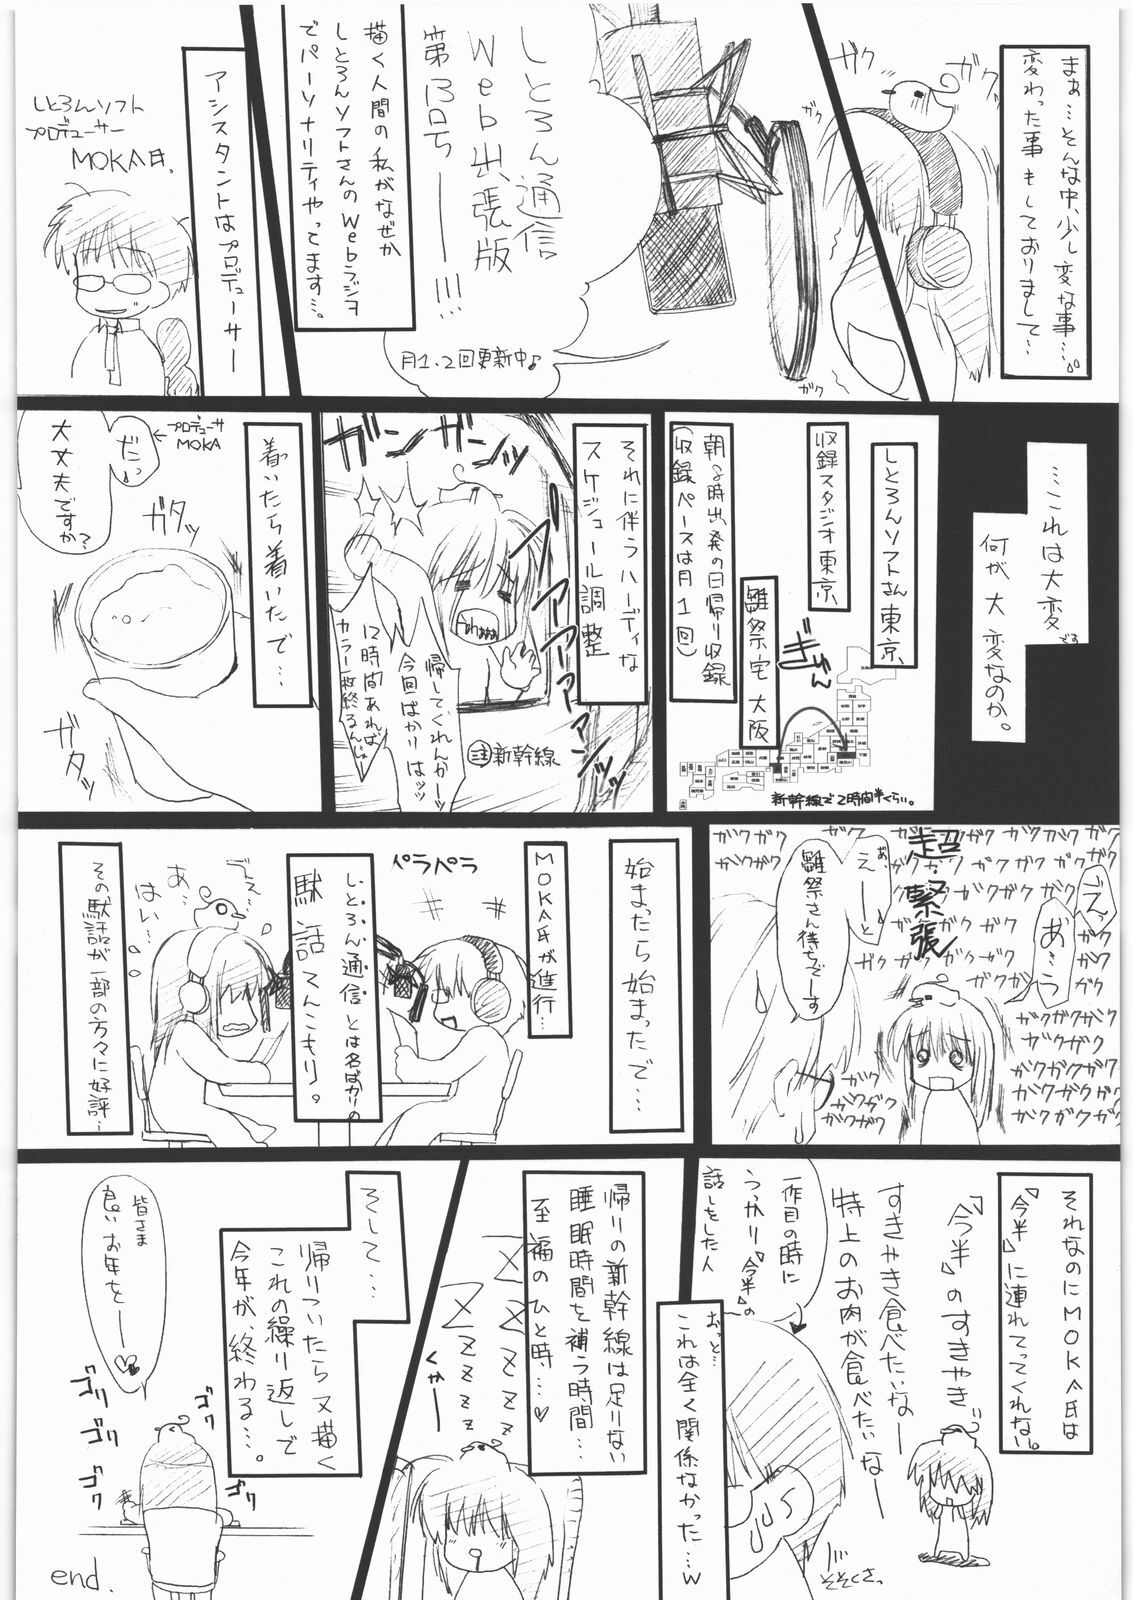 まぁ…そんな中、少し変な事…。
変わった事もしておりまして…
ガク
ガク
ガク
ガク
しとろん通信
Web出張版
第13号ーー!!!
月1、2回更新中♪
描く人間の私がなぜか
しとろんソフトさんのWebラジヲ
でパーソナリティやってます…。
アシスタントはプロデューサー
しとろんソフト
プロデューサー
MOKA氏.
…これは大変です
何が大変なのか。
しとろんソフトさん 東京、
収録スタジオ 東京、
雛祭宅 大阪
朝8時出発の日帰り収録
(収録ペースは月1回)
ぎゅん
新幹線で2時間半くらい。
それに伴うハーディな
スケジュール調整
ガンガンガンッ
アーアーアーアンッ
帰してぐれんかーッ
今回ばかりはッッ
12時間あれば
カラー一枚終るんじゃ
注 新幹線
着いたら着いたで…
プロデューサ
MOKA
だっ
大丈夫ですか?
ガタッ
ガタッ
超緊張
ガクガクガクガク
あ、
えーーと
雛祭さん待ちでーす
えっ
あ…う
ガクガクガクガク
始まったら始まったで…
MOKA氏が進行…
ペラペラ
しとろん通信とは名ばかりの
駄話てんこもり。
でぇ…
あ…
はい…
その駄話が一部の方々に好評…
それなのにMOKA氏は
『今半』に連れてってくれない。
『今半』のすきやき…
すきやき食べたいなー
特上のお肉が食べたいなー
一作目の時に
うっかり『今半』の
話しをした人
おっと…
これは全く関係なかった…w
そそくさっ
帰りの新幹線は足りない
睡眠時間を補う時間…
至福のひと時…♡
ZZZZZZZ
くかーー
そして…
帰りついたら又描く
これの繰り返しで
今年が、終わる…。
皆さま
良いお年をーー♡
ゴリ
ゴリ
ゴリ
ゴク
ゴク
end.